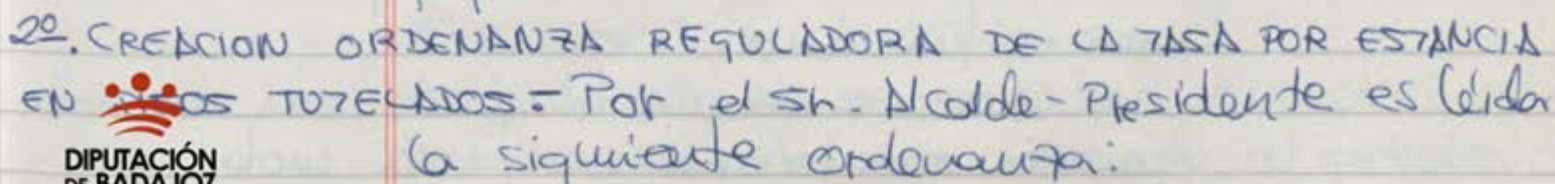 2º. CREACION ORDENANZA REGULADORA DE LA TASA POR ESTANCIA
EN TUTELADOS.- Por el Sr. Alcalde-Presidente es leída
la siguiente ordenanza:
DIPUTACIÓN
DE BADAJOZ